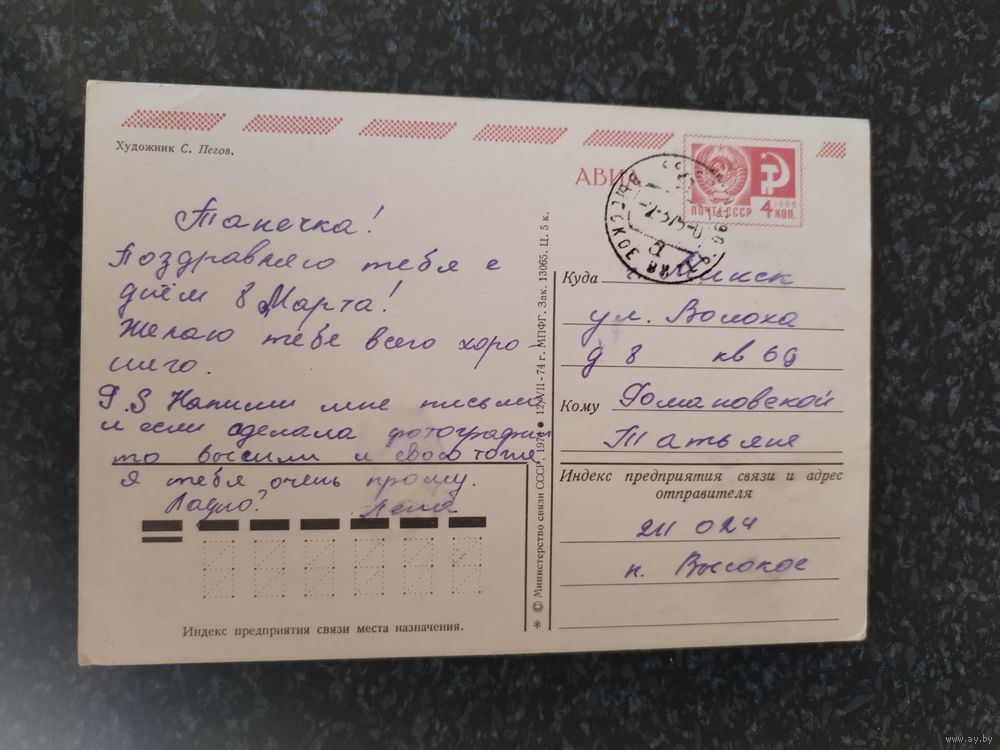 Художник С. Пегов.
АВИА
ПОЧТА СССР
1966
4 КОП.
Танечка!
Поздравляю тебя с
днём 8 Марта!
Желаю тебе всего хоро-
шего.
P.S Напиши мне письмо
и если сделала фотографии
то вышли и свою тоже
я тебя очень прошу.
Ладно?
Куда
Минск
ул. Волоха
д 8 кв 69
Кому
Романовской
Татьяне
Индекс предприятия связи и адрес
отправителя
211 024
п. Высокое
Индекс предприятия связи места назначения.
* © Министерство связи СССР. 1974 ● 12/VII-74 г. МПФГ. Зак. 13065. Ц. 5 к.
www.ay.by